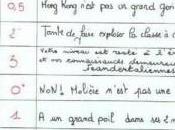 0,5 Hong Kong n'est pas un grand gori
2 Tante de faire exploser la classe à c
3 Votre niveau est resté à l'è
et vos connaissances demeure
neandertaliennes
0 NON! Molière n'est pas une
1 A un grand poil dans sa